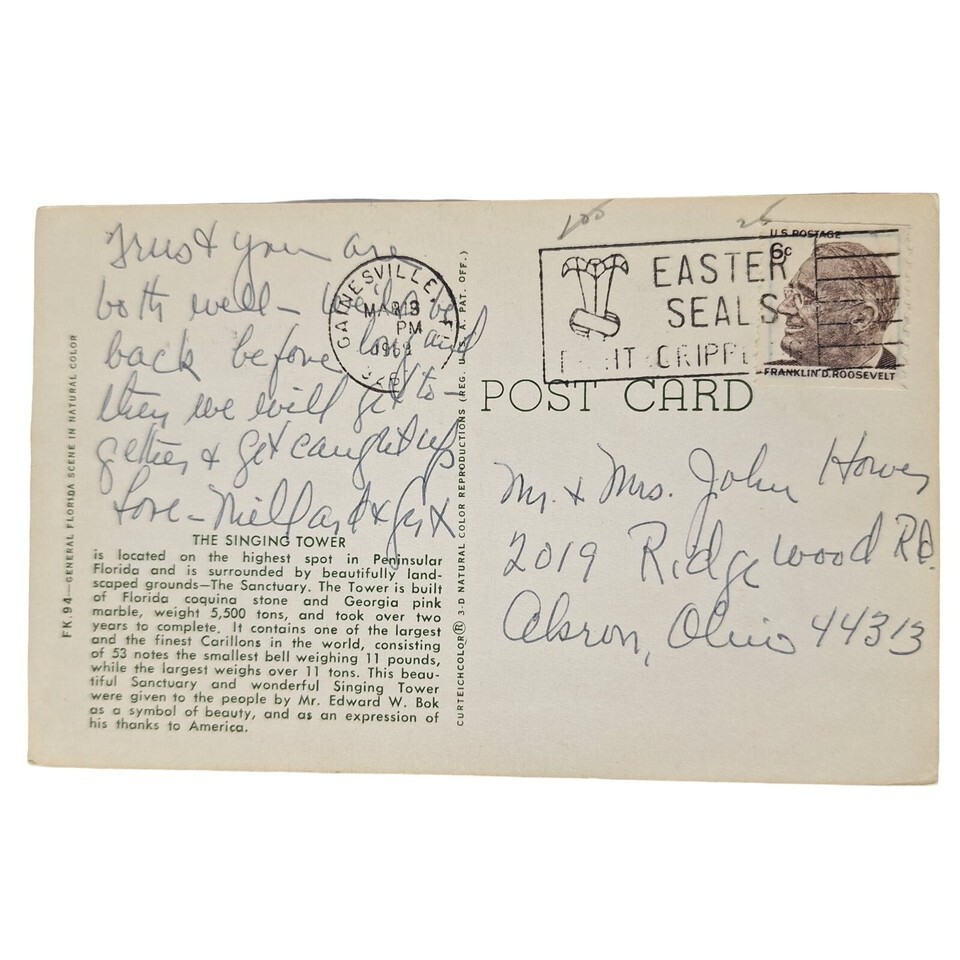 Trust you are
both well - We'll be
back before long and
then we will get to-
gether & get caught up
Love - Millard &
THE SINGING TOWER
is located on the highest spot in Peninsular
Florida and is surrounded by beautifully land-
scaped grounds—The Sanctuary. The Tower is built
of Florida coquina stone and Georgia pink
marble, weight 5,500 tons, and took over two
years to complete. It contains one of the largest
and the finest Carillons in the world, consisting
of 53 notes the smallest bell weighing 11 pounds,
while the largest weighs over 11 tons. This beau-
tiful Sanctuary and wonderful Singing Tower
were given to the people by Mr. Edward W. Bok
as a symbol of beauty, and as an expression of
his thanks to America.
FK.94—GENERAL FLORIDA SCENE IN NATURAL COLOR
CURTEICHCOLOR® 3-D NATURAL COLOR REPRODUCTIONS (REG. U.S.A. PAT. OFF.)
GAINESVILLE, FL
MAR
PM
EASTER
SEALS
U.S. POSTAGE
6¢
FRANKLIN D. ROOSEVELT
POST CARD
Mr. & Mrs. John
2019 Ridgewood Rd.
Akron, Ohio 44313